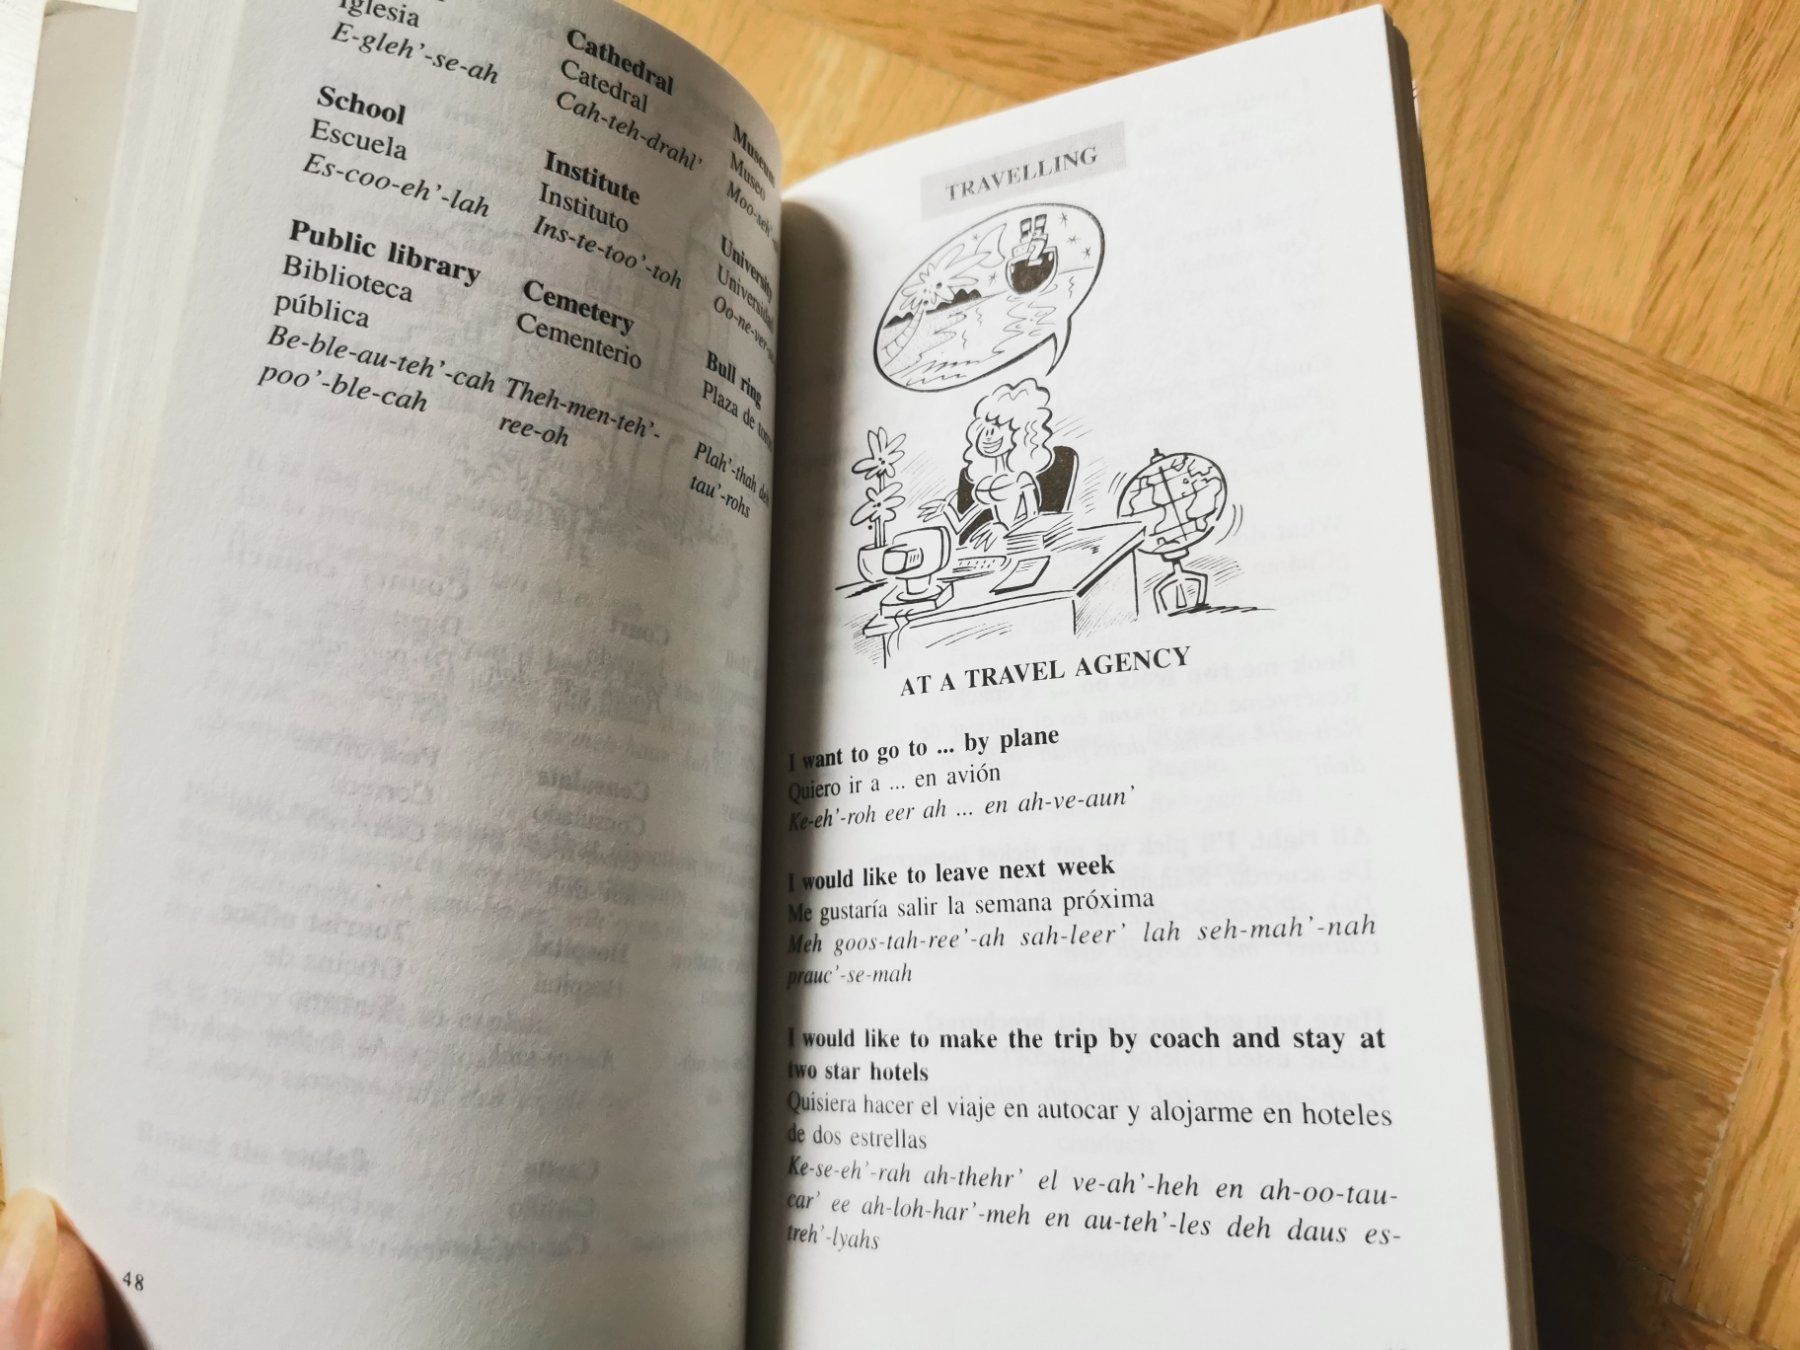 Iglesia
E-gleh'-se-ah
School
Escuela
Es-coo-eh'-lah
Public library
Biblioteca
pública
Be-ble-au-teh'-cah
poo'-ble-cah
Cathedral
Catedral
Cah-teh-drahl'
Institute
Instituto
Ins-te-too'-toh
Cemetery
Cementerio
Theh-men-teh'-
ree-oh
Museum
Museo
Moo-seh'
University
Universidad
Oo-ne-ver-
Bull ring
Plaza de
Plah'-thah deh
tau'-rohs
48
TRAVELLING
AT A TRAVEL AGENCY
I want to go to ... by plane
Quiero ir a ... en avión
Ke-eh'-roh eer ah ... en ah-ve-aun'
I would like to leave next week
Me gustaría salir la semana próxima
Meh goos-tah-ree'-ah sah-leer' lah seh-mah'-nah
prauc'-se-mah
I would like to make the trip by coach and stay at
two star hotels
Quisiera hacer el viaje en autocar y alojarme en hoteles
de dos estrellas
Ke-se-eh'-rah ah-thehr' el ve-ah'-heh en ah-oo-tau-
car' ee ah-loh-har'-meh en au-teh'-les deh daus es-
treh'-lyahs